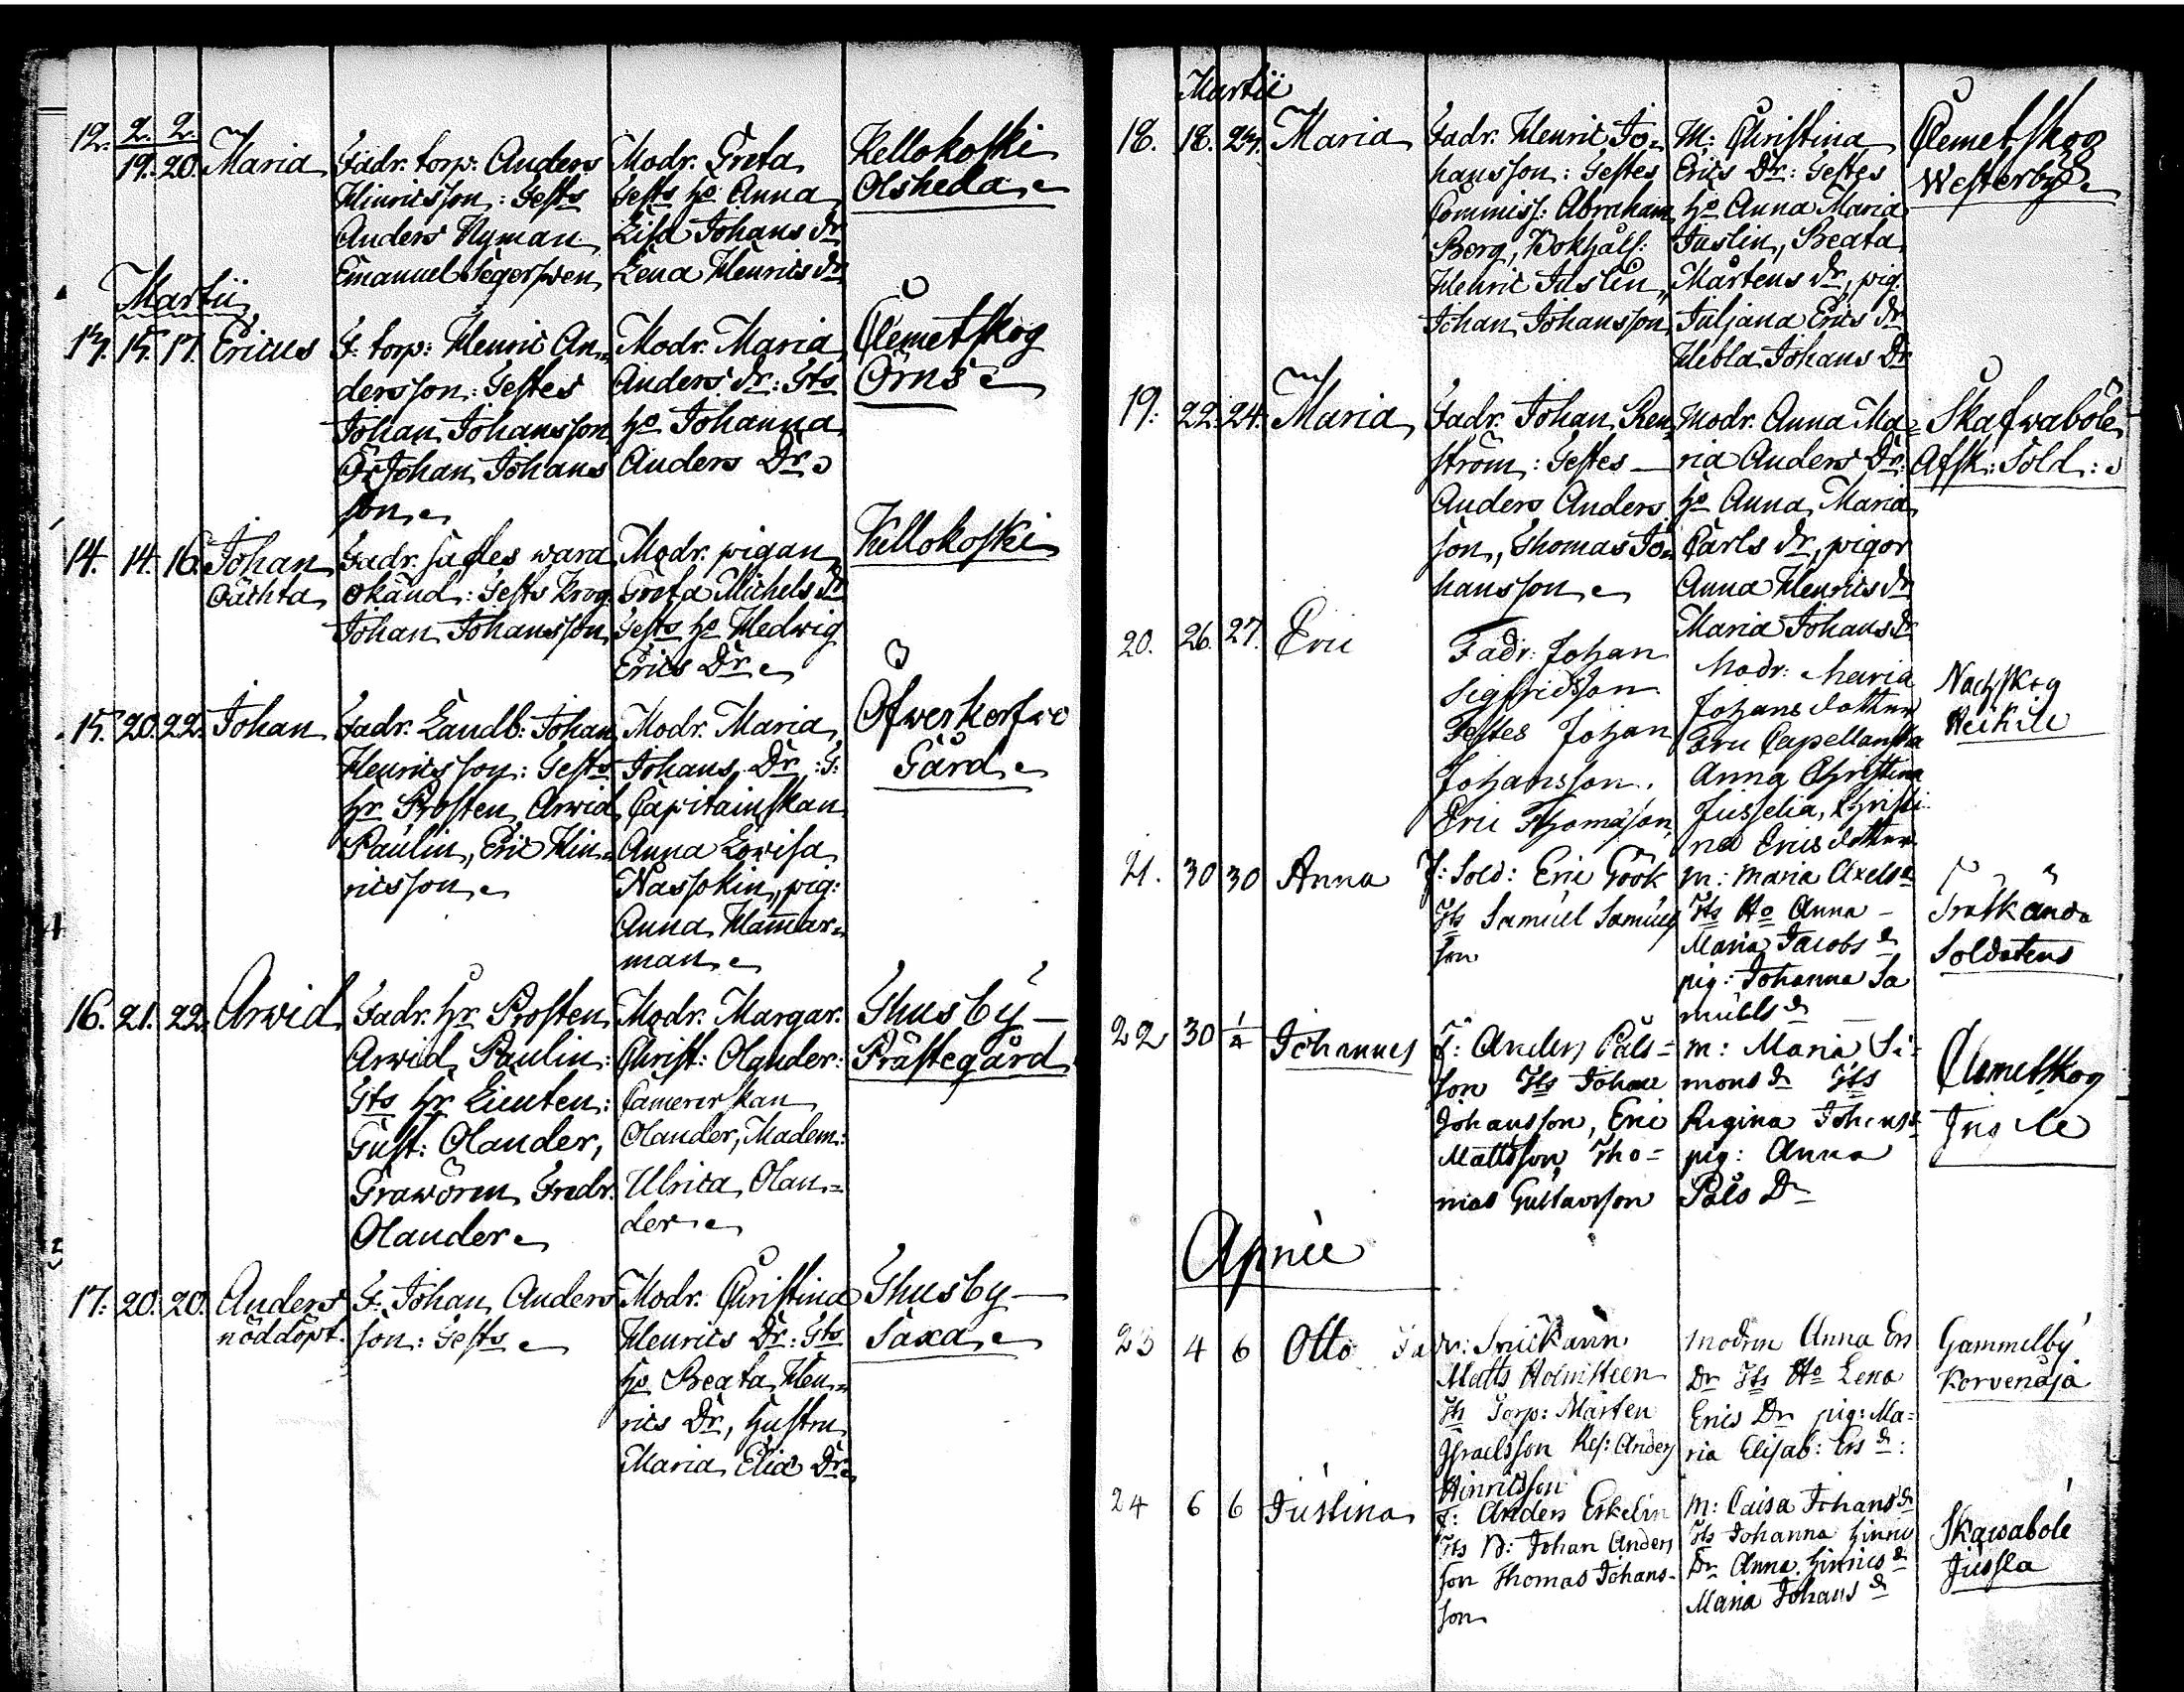 12. 2. 2.
19. 20. Maria
Fadr. torp: Anders
Hinricsson: Test:s
Anders Nyman
Emanuel Segersven
Modr. Greta
Test:s h:o Anna
Lisa Johans dr
Lena Henrics dr
Kellokoski
Olsheda
Martii
13. 15. 17. Ericus
F. torp: Henric An=
dersson: Testes
Johan Johansson
Johan Johans
son
Modr. Maria
Anders dr: Tts
h:o Johanna
Anders Dr
Clemetskog
Örns
14. 14. 16. Johan
oächta
Fadr. sades wara
okänd: Tests Krog.
Johan Johansson
Modr. pigan
Greta Michels dr
Tests h:o Hedwig
Erics Dr
Kellokoski
15. 20. 22. Johan
Fadr. Landb: Johan
Henricsson: Tests
Hr Prosten Arwid
Paulin, Eric Hin=
ricsson
Modr. Maria
Johans Dr: T:
Capitainskan
Anna Lovisa
Nassokin, pig:
Anna Hammar=
man
Ofwerkerfwo
Gård
16. 21. 22. Arwid
Fadr. Hr Prosten
Arwid Paulin:
Tts Hr Lieuten:
Gust: Olander,
Fredr.
Olander
Modr. Margar.
Christ: Olander:
Camererskan
Olander, Madem:
Ulrica Olan=
der
Thusby
Prästegård
17. 20. 20. Anders
nöddöpt.
F. Johan Anders
son: Tests
Modr. Christina
Henrics Dr: Tts
h:o Beata Hen=
rics Dr, hustru
Maria Elia Dr
Thusby
Saxa
Martii
18. 18. 23. Maria
Fadr. Henric Jo=
hansson: Testes
Commiss: Abraham
Berg, Bokhåll:
Henric Juslin,
Johan Johansson
M: Christina
Erics Dr: Testes
h:o Anna Maria
Juslin, Beata
Mårtens dr, pig.
Juljana Erics dr
Hebla Johans Dr
Clemetskog
Westerby
19. 22. 24. Maria
Fadr. Johan Ren=
ström: Testes
Anders Anders
son, Thomas Jo=
hansson
Modr. Anna Ma=
ria Anders Dr:
h:o Anna Maria
Carls dr, pigor
Anna Henrics dr
Maria Johans dr
Skafwaböle
Afsk: Sold:
20. 26. 27. Eric
Fadr: Johan
Sigfridsson
Testes Johan
Johansson.
Eric Thomasson
Modr: Maria
Johansdotter
Fru Capellanska
Anna Christina
Jusselia, Christi
na Ericsdotter
Nachskog
Heikile
21. 30 30 Anna
F: Sold: Eric Göök
Tts Samuel Samuels
son
M: Maria Axels dr
Tts H:o Anna
Maria Jacobs dr
pig: Johanna Sa
muels dr
Träskända
Soldatens
22 30 1/4 Johannes
F: Anders Påls=
son Tts Johan
Johansson, Eric
Mattsson, Tho=
mas Gustavsson
M: Maria Si=
mons dr Tts
Regina Johans dr
pig: Anna
Påls Dr
Clemetskog
April
23 4 6 Otto
Fadr: Snickarin
Matts Holmsteen
Tts Torp: Mårten
Ysraelsson Res: Anders
Hinricsson
Modren Anna Ers
Dr Tts H:o Lena
Erics Dr pig: Ma=
ria Elisab: Ers dr:
Gammelby
Korvenåja
24 6 6 Justina
F: Anders Eskelin
Tts B: Johan Anders
son Thomas Johans-
son
M: Caisa Johans dr
Tts Johanna Hinrics
Dr Anna Hinrics dr
Maria Johans dr
Skawaböle
Jussla